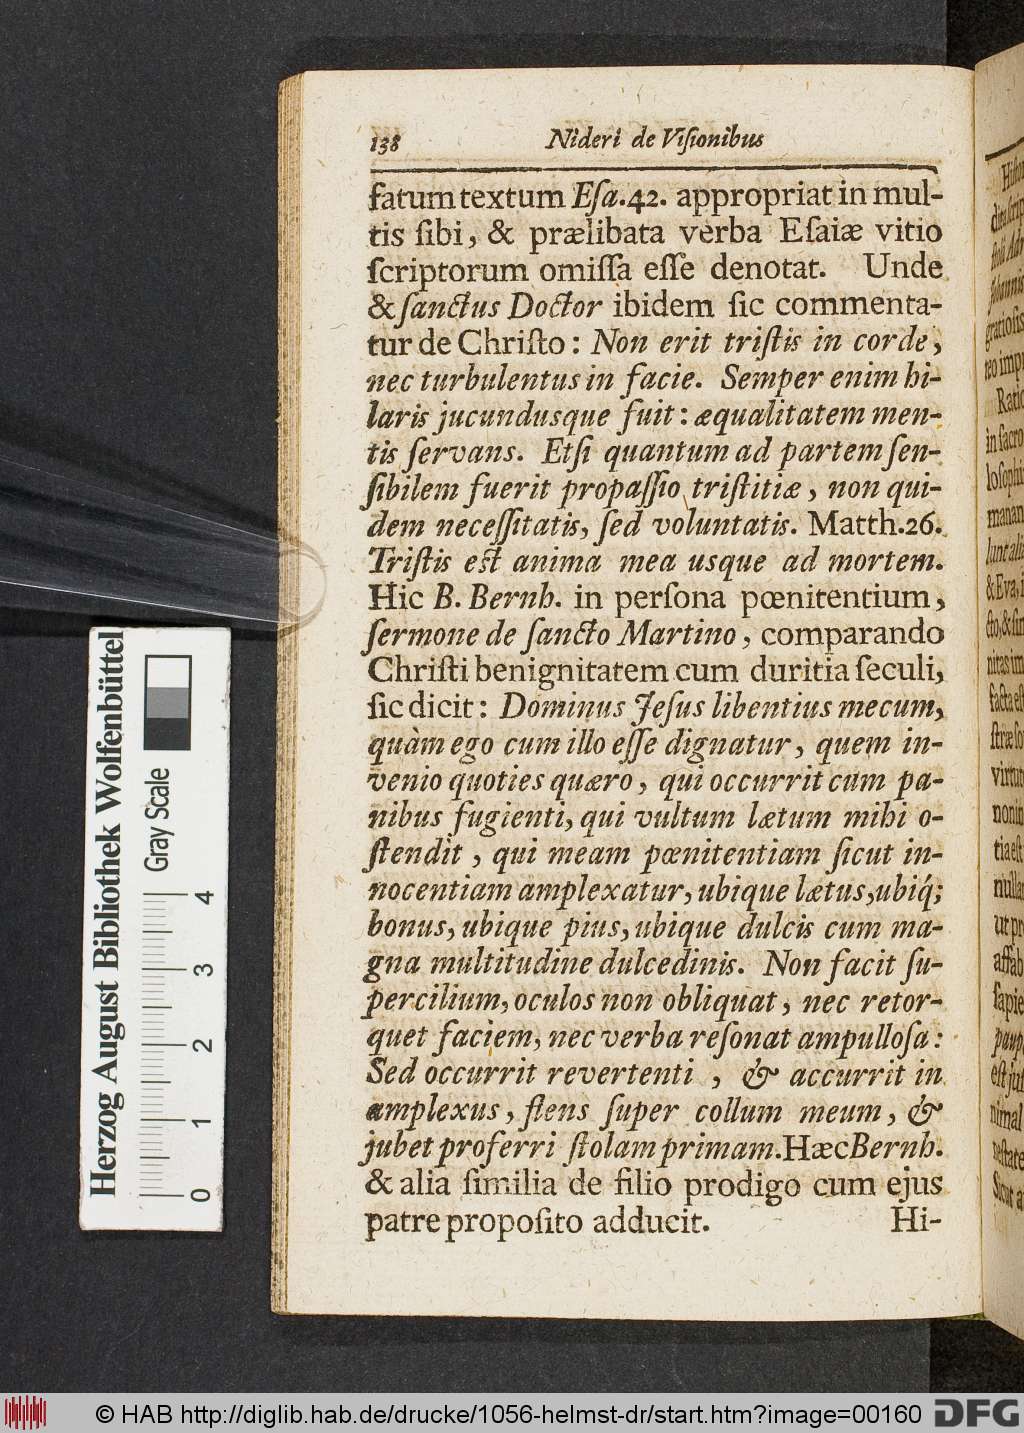 138 Nideri de Viſionibus
fatum textum Eſa. 42. appropriat in mul-
tis ſibi, & prælibata verba Eſaiæ vitio
ſcriptorum omiſſa eſſe denotat. Unde
& ſanctus Doctor ibidem ſic commenta-
tur de Chriſto: Non erit triſtis in corde,
nec turbulentus in facie. Semper enim hi-
laris jucundusque fuit: æqualitatem men-
tis ſervans. Etſi quantum ad partem ſen-
ſibilem fuerit propaſſio triſtitiæ, non qui-
dem neceſſitatis, ſed voluntatis. Matth. 26.
Triſtis eſt anima mea usque ad mortem.
Hic B. Bernh. in perſona pœnitentium,
ſermone de ſancto Martino, comparando
Chriſti benignitatem cum duritia ſeculi,
ſic dicit: Dominus Jeſus libentius mecum,
quàm ego cum illo eſſe dignatur, quem in-
venio quoties quæro, qui occurrit cum pa-
nibus fugienti, qui vultum lætum mihi o-
ſtendit, qui meam pœnitentiam ſicut in-
nocentiam amplexatur, ubique lætus, ubiq́;
bonus, ubique pius, ubique dulcis cum ma-
gna multitudine dulcedinis. Non facit ſu-
percilium, oculos non obliquat, nec retor-
quet faciem, nec verba reſonat ampulloſa:
Sed occurrit revertenti, & accurrit in
amplexus, flens ſuper collum meum, &
jubet proferri ſtolam primam. Hæc Bernh.
& alia ſimilia de filio prodigo cum ejus
patre propoſito adducit.
Hi-
Herzog August Bibliothek Wolfenbüttel
Gray Scale
0 1 2 3 4
© HAB http://diglib.hab.de/drucke/1056-helmst-dr/start.htm?image=00160
DFG